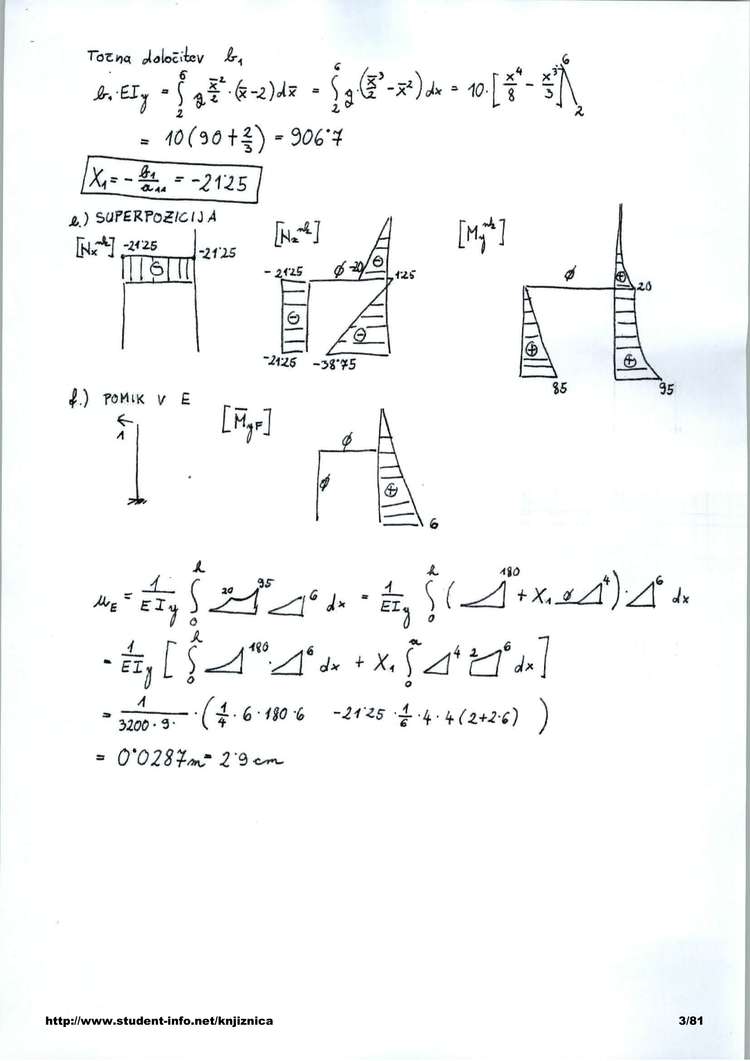 Točna določitev b₁
b₁·EI_y = ∫₂⁶ g x̄²/2 · (x̄-2) dx̄ = ∫₂⁶ g·(x̄³/2 - x̄²) dx = 10·[x⁴/8 - x³/3]₂⁶
= 10(90 + 2/3) = 906'7
X₁ = - b₁/a₁₁ = -21'25
e.) SUPERPOZICIJA
-21'25 -21'25 ⊖
-21'25 ∅ -20 ⊖ 1'25
⊖ ⊖
-21'25 -38'75
∅ ⊕ 20
⊕ ⊕
85 95
f.) POMIK V E
1
[M̄_yF]
∅
∅ ⊕
6
u_E = 1/EI_y ∫₀ʰ 20 95 6 dx = 1/EI_y ∫₀ʰ ( 180 + X₁ ∅ 4 ) · 6 dx
= 1/EI_y [ ∫₀ʰ 180 · 6 dx + X₁ ∫₀ᵃ 4 2 6 dx ]
= 1/3200·9· · ( 1/4 · 6 · 180·6 -21'25 · 1/6 · 4 · 4 (2+2·6) )
= 0'0287m = 2'9 cm
http://www.student-info.net/knjiznica 3/81